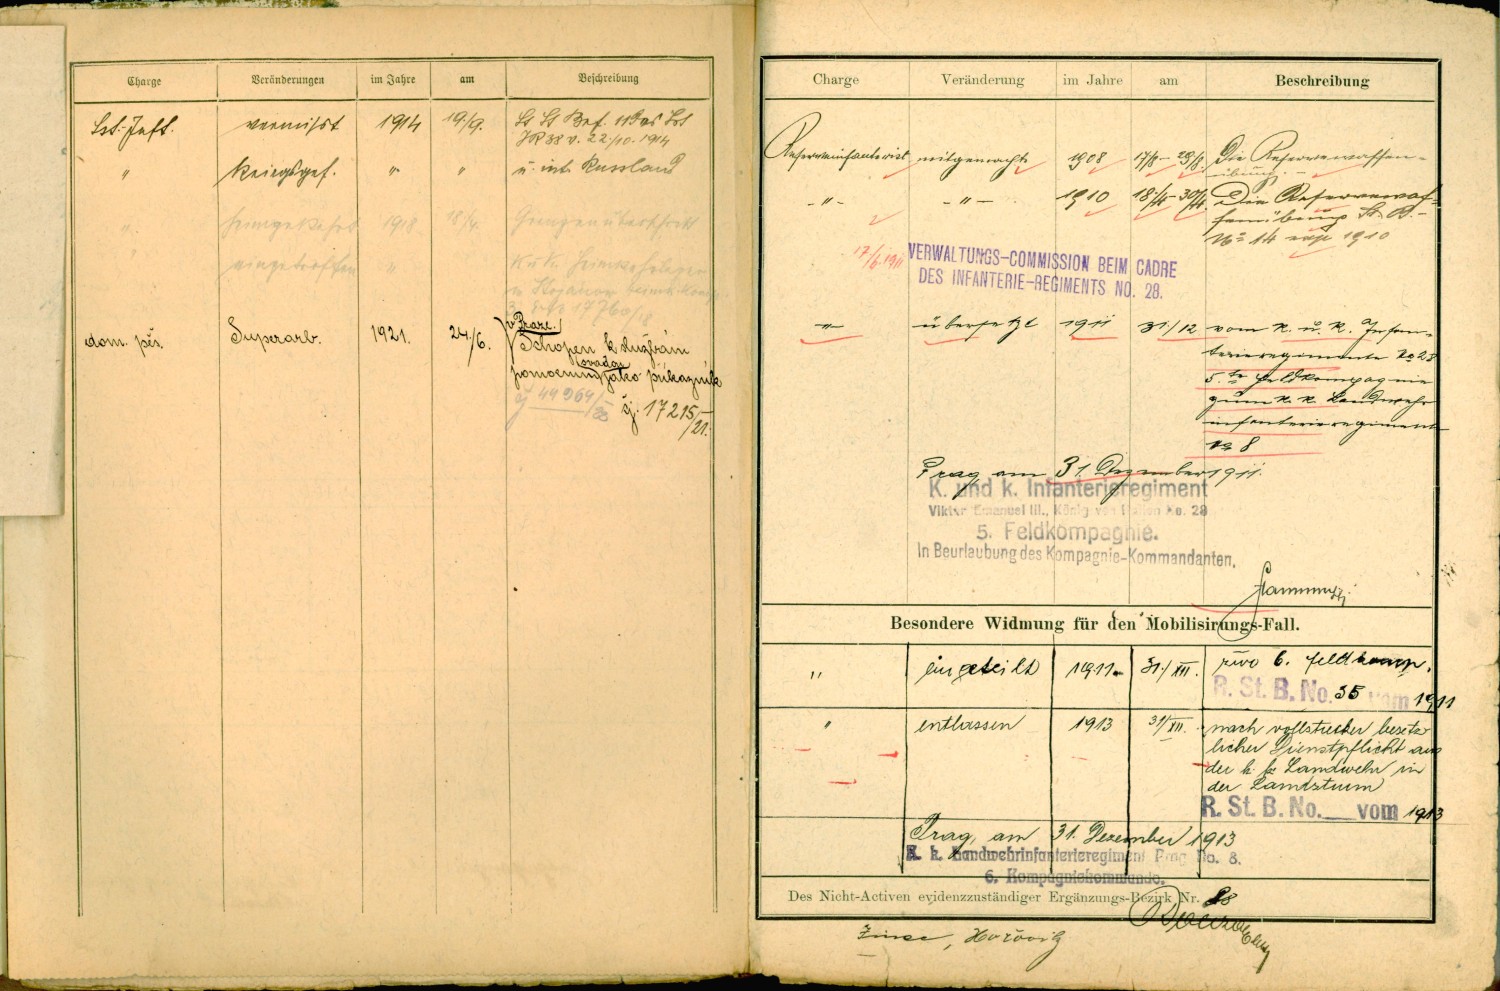 Charge Veränderungen im Jahre am Beschreibung
Lst.-Inft. vermisst 1914 19./9.
JR 38 v. 22/10. 1914
" kriegsgef. " " u. int. Russland
" heimgekehrt 1918 18/4. Grenzenübertritt
" eingetroffen " K.u.k. Heimkehrlager
dom. pěš. Superarb. 1921. 24./6. v Praze.
Schopen k službám
pomocným jako příkazník
čj. 17215/21.
Charge Veränderung im Jahre am Beschreibung
Reserveinfanterist mitgemacht 1908 17/8–29/8. Die Reservewaffen-
übung.-
-"- -"- 1910 18/4–30/4. Die Reservewaf-
fenübung St. B.-
No 14 1910
17/6. 1911
VERWALTUNGS-COMMISSION BEIM CADRE
DES INFANTERIE-REGIMENTS NO. 28.
-"- übersetzt 1911 31/12. vom k. u. k. Infan-
terieregimente No 28
5.te Feldkompagnie
zum k. k. Landwehr
infanterieregimente
No 8
Prag, am 31. Dezember 1911.
K. und k. Infanterieregiment
Viktor Emanuel III., König von Italien No. 28
5. Feldkompagnie.
In Beurlaubung des Kompagnie-Kommandanten.
Besondere Widmung für den Mobilisirungs-Fall.
" eingeteilt 1911. 31./XII. zur 6. Feldkomp.
R. St. B. No. 35 vom 1911
" entlassen 1913 31/XII. nach vollstreckter gesetz-
licher Dienstpflicht aus
der k. k. Landwehr in
der Landsturm
R. St. B. No. vom 1913
Prag, am 31. Dezember 1913
K. k. Landwehrinfanterieregiment Prag No. 8.
6. Kompagniekommando.
Des Nicht-Activen evidenzzuständiger Ergänzungs-Bezirk Nr. 28
, Hořovitz